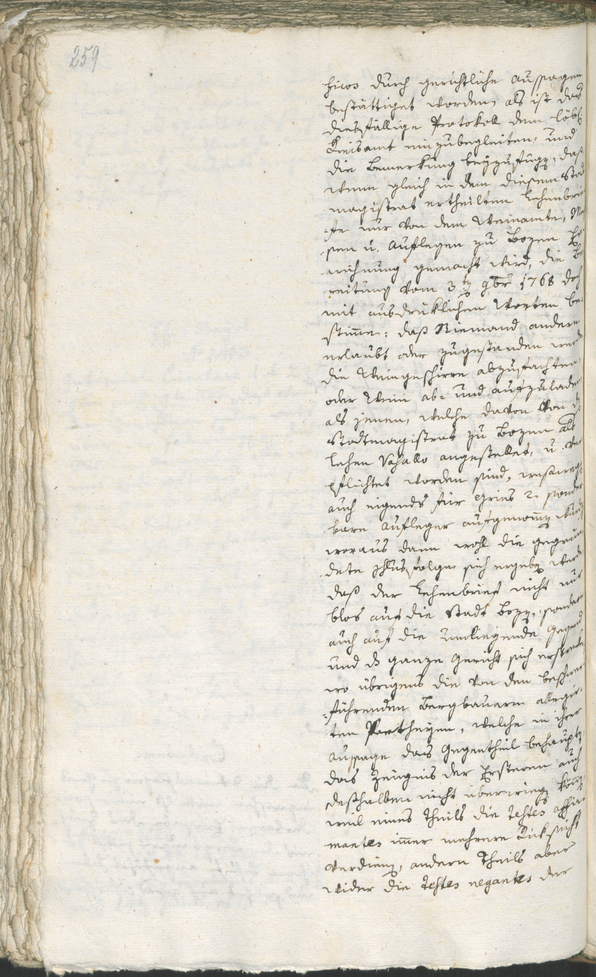 259
hiros durch gerichtliche Aussagen
bestättiget worden, als ist das
diesfällige Protokoll dem Löbl
Kreisamt einzubegleiten, und
die Bemerkung beyzufügen, daß
wenn gleich in dem diesem Stadt
magistrat ertheilten Lehenbrie
fe nur von dem Weinamte,
und Auflegen zu Bozen
wehnung gemacht wird, die
reitung vom 3. 9br 1768 doch
mit ausdrücklichen Worten be
stimme: daß Niemand andern
erlaubt oder zugestanden werde
die Weingeschirre abzufachten
oder Wein ab- und aufzuladen
als jenen, welche davon von
Stadtmagistrat zu Bozen als
Lehen Vasallo angestellet, u.
pflichtet worden sind,
auch eigends für Gries 2 sonder
bare Aufleger aufgenommen
woraus dann wohl die gegrün
dete Schlusfolge sich ergeben
daß der Lehenbrief nicht nur
blos auf die Stadt Bozen, sondern
auch auf die umliegende Gegend
und das ganze Gericht sich erstrecke
wo übrigens die von den beschwer
führenden Bergbauern allegir
ten Partheyen, welche in ihrer
Aussage das Gegentheil behaupten
das Zeugnis der Ersteren auch
deßhalben nicht überwiegen
weil eines Theils die Testes affir
mantes immer mehrere Rücksicht
verdienen, andern Theils aber
wider die Testes negantes der